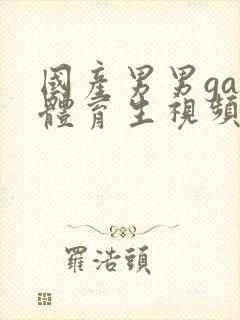 國產男男ga
體育生視頻
羅浩頭